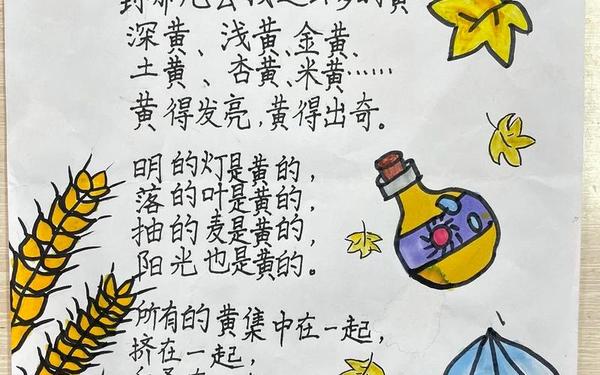 深黄、浅黄、金黄、
土黄、杏黄、米黄……
黄得发亮，黄得出奇。
明的灯是黄的，
落的叶是黄的，
抽的麦是黄的，
阳光也是黄的。
所有的黄集中在一起，
挤在一起，